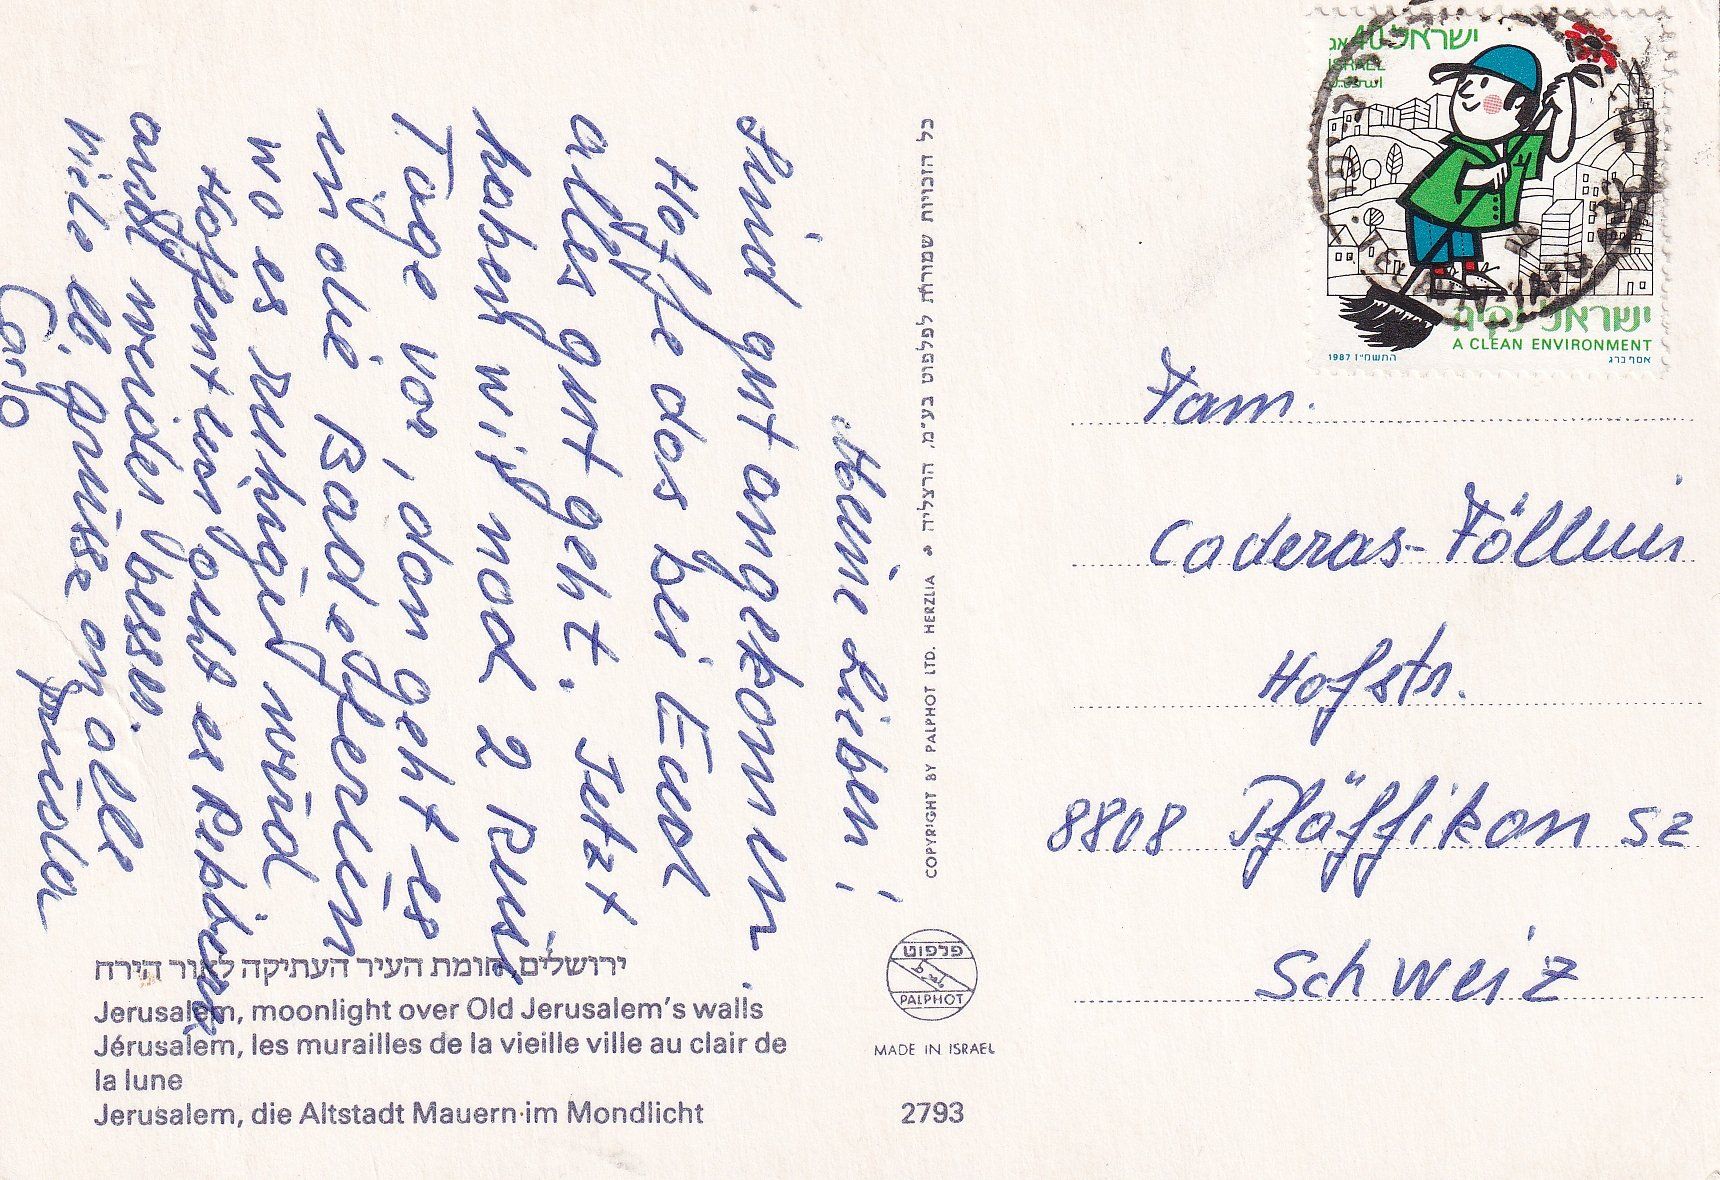 Meine Lieben,
Sind gut angekommen.
Hoffe das bei Euch
alles gut geht. Jetzt
haben wir noch 2 Reise
Tage vor, dan geht es
in die Badeferien
wo es ruhiger wird
Hoffentlich geht es Rebbeca
auch wieder besser.
viele lb. grüsse an alle
Carlo
Priska
כל הזכויות שמורות לפלפוט בע"מ, הרצליה
COPYRIGHT BY PALPHOT LTD. HERZLIA
ירושלים, חומת העיר העתיקה לאור הירח
Jerusalem, moonlight over Old Jerusalem's walls
Jérusalem, les murailles de la vieille ville au clair de
la lune
Jerusalem, die Altstadt Mauern im Mondlicht
פלפוט
PALPHOT
MADE IN ISRAEL
2793
ישראל 40 אג
ISRAEL
اسرائيل
TEL AVIV-YAFO
ישראל נקיה
A CLEAN ENVIRONMENT
1987 התשמ"ז
אסף ברג
Fam.
Caderas-Föllmi
Hofstr.
8808 Pfäffikon SZ
Schweiz